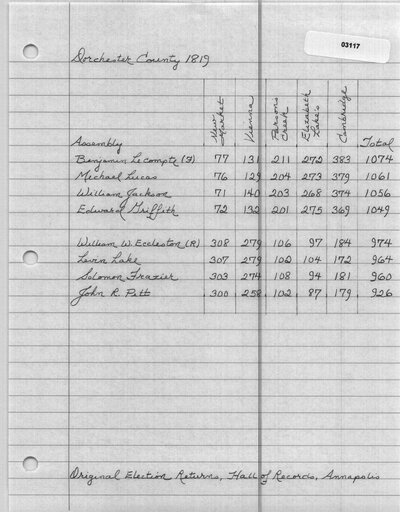 03117
Dorchester County 1819
New Market Vienna Parsons Creek Elizabeth Lake's Cambridge
Assembly Total
Benjamin LeCompte (F) 77 131 211 272 383 1074
Michael Lucas 76 129 204 273 379 1061
William Jackson 71 140 203 268 374 1056
Edward Griffith 72 132 201 275 369 1049
William W. Eccleston (R) 308 279 106 97 184 974
Levin Lake 307 279 102 104 172 964
Solomon Frazier 303 274 108 94 181 960
John R. Pitt 300 258 102 87 179 926
Original Election Returns, Hall of Records, Annapolis